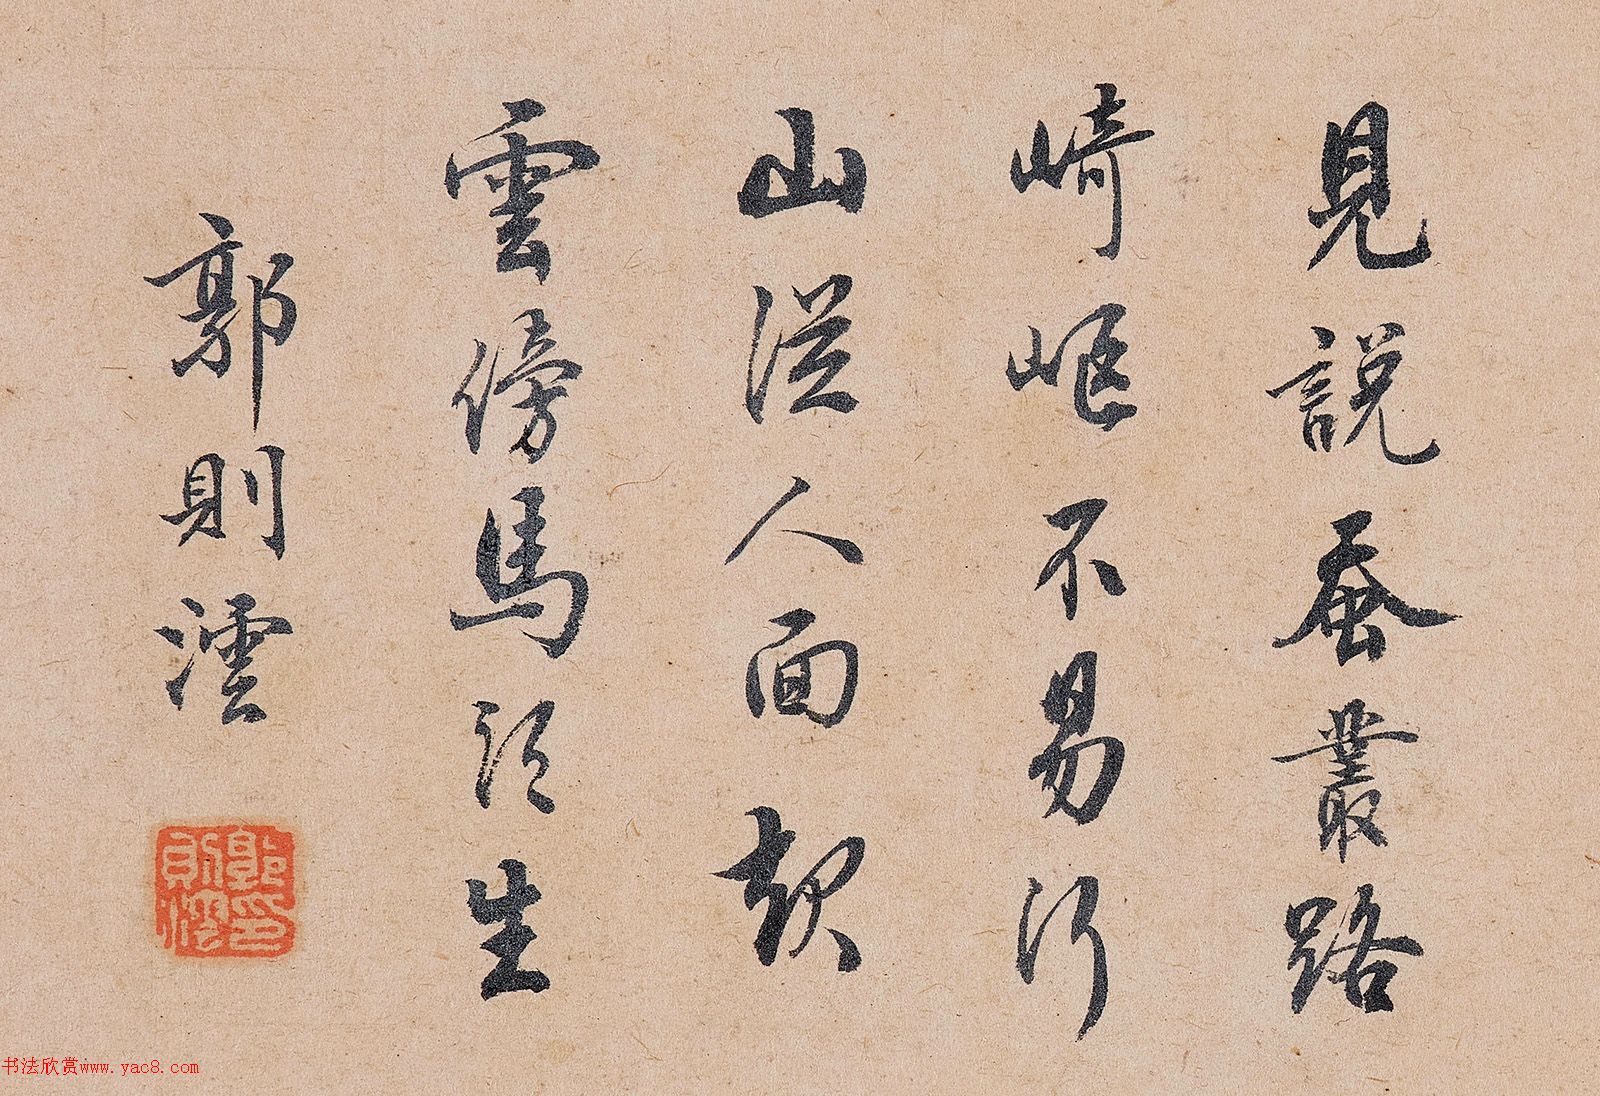 見說蚕叢路
崎嶇不易行
山從人面起
雲傍馬頭生
郭則澐
郭則澐印
书法欣赏www.yac8.com